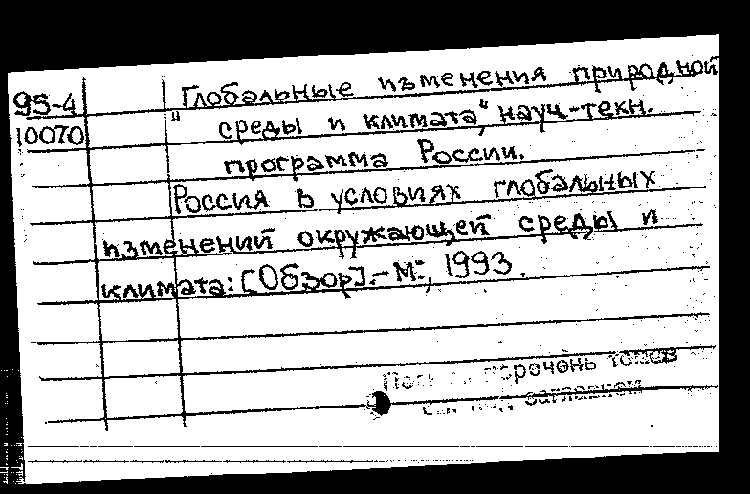 95-4
10070
"Глобальные изменения природной
среды и климата", науч.-техн.
программа России.
Россия в условиях глобальных
изменений окружающей среды и
климата: [Обзор].- М., 1993.
перечень томов
заглавием